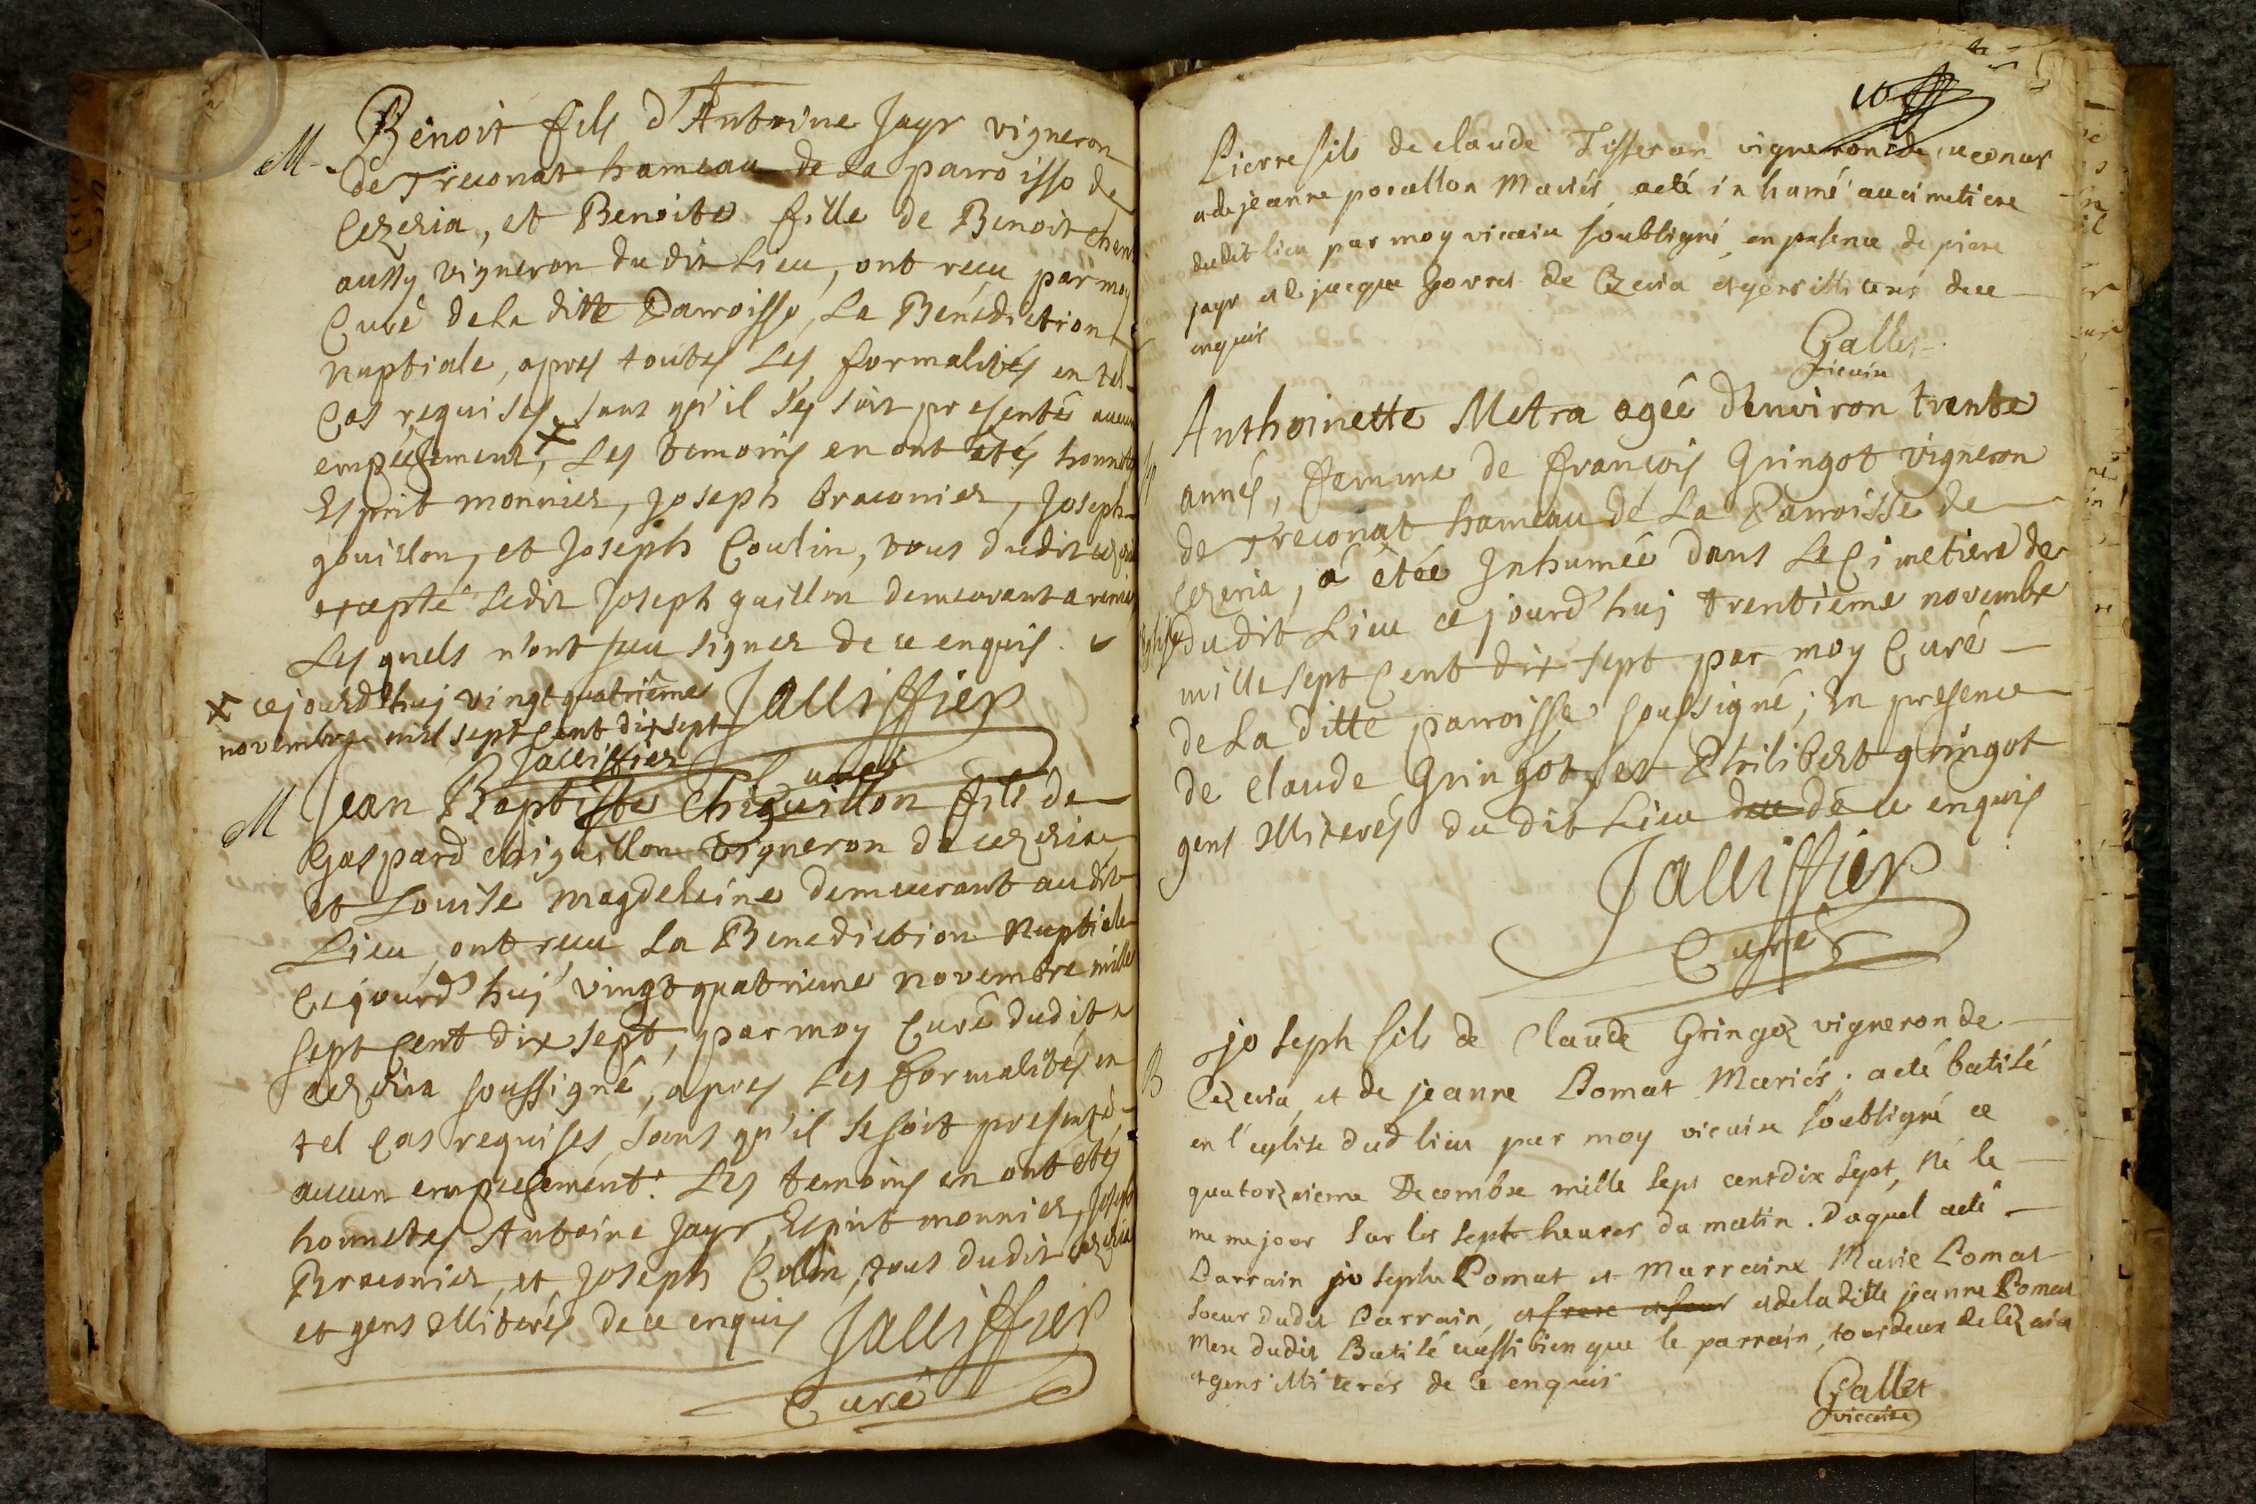 M
Benoit fils d'Antoine Jayr vigneron
de Treconat hameau de la parroisse de
Cezeria, et Benoite fille de Benoit
aussy vigneron dudit Lieu, ont reçu par moy
Curé de la ditte Parroisse, La Bénédiction
nuptiale, apres toutes Les formalités en tel
Cas requises, sans qu'il s'y soit presenté aucun
empeschement, × Les temoins en ont étés honnetes
Esprit monnier, Joseph braconier, Joseph
gouillon, et Joseph Coulin, tous dudit
excepté Ledit Joseph guillon demeurant a
Lesquels n'ont sceu signer de ce enquis.
× cejourd'huj vingt quatrieme
novembre mil sept cent dix sept
Jalliffier
Jalliffier
Curé
M
Jean Baptiste Chiguillon fils de
Gaspard chiguillon vigneron de cezeria
et Louise magdeleine demeurant audit
Lieu, ont reçu La Benediction Nuptiale
Cejourd'huj vingt quatrieme novembre mille
sept Cent dix sept, par moy Curé dudit
cezeria soussigné, apres Les formalités en
tel Cas requises, sans qu'il se soit presenté
aucun empechement. Les temoins en ont étés
honnetes Antoine Jayr, Esprit monnier, Joseph
Braconier, et Joseph Colin, tous dudit cezeria
et gens illiterés de ce enquis
Jalliffier
Curé
Pierre fils de claude Tisseran vigneron de
et de jeanne pocallon Mariés, a eté inhumé au cimetiere
dudit lieu par moy vicaire soubsigné, en presence de piere
jayr et de jacque de Cezeria et gens illiterés de ce
enquis
Gallet
vicaire
Anthoinette Metra agée d'environ trente
années, femme de françois Gringot vigneron
de Treconat hameau de La Parroisse de
Cezeria, a étée Inhumée dans Le Cimetiere de
Eglise dudit Lieu cejourd'huj trentieme novembre
mille sept Cent dix sept par moy Curé
de La ditte parroisse soussigné; En presence
de Claude Gringot, et Philibert gringot
gens illiterés du dit Lieu de ce enquis
Jalliffier
Curé
B
joseph fils de Claude Gringoz vigneron de
Cezeria, et de jeanne Pomat Mariés; a eté batisé
en l'eglise dud lieu par moy vicaire soubsigné ce
quatorzieme Decembre mille sept cent dix sept, Né le
meme jour sur les sept heures du matin. Duquel a eté
Parrain joseph Pomat et Marraine Marie Pomat
soeur dudit Parrain, et frere et soeur et de la ditte jeanne Pomat
Mere dudit Batisé aussi bien que le parrain, tous deux de Cezeria
et gens illiterés de ce enquis
Gallet
vicaire